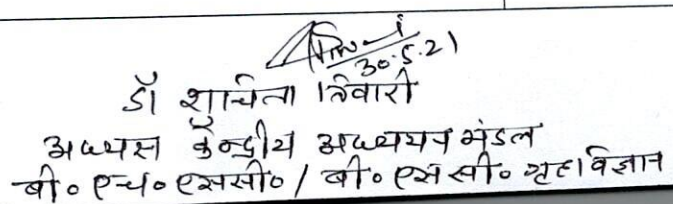 30.5.21
डॉ शुचिता तिवारी
अध्यक्ष केन्द्रीय अध्ययन मंडल
बी० एच० एससी० / बी० एस सी० गृहविज्ञान